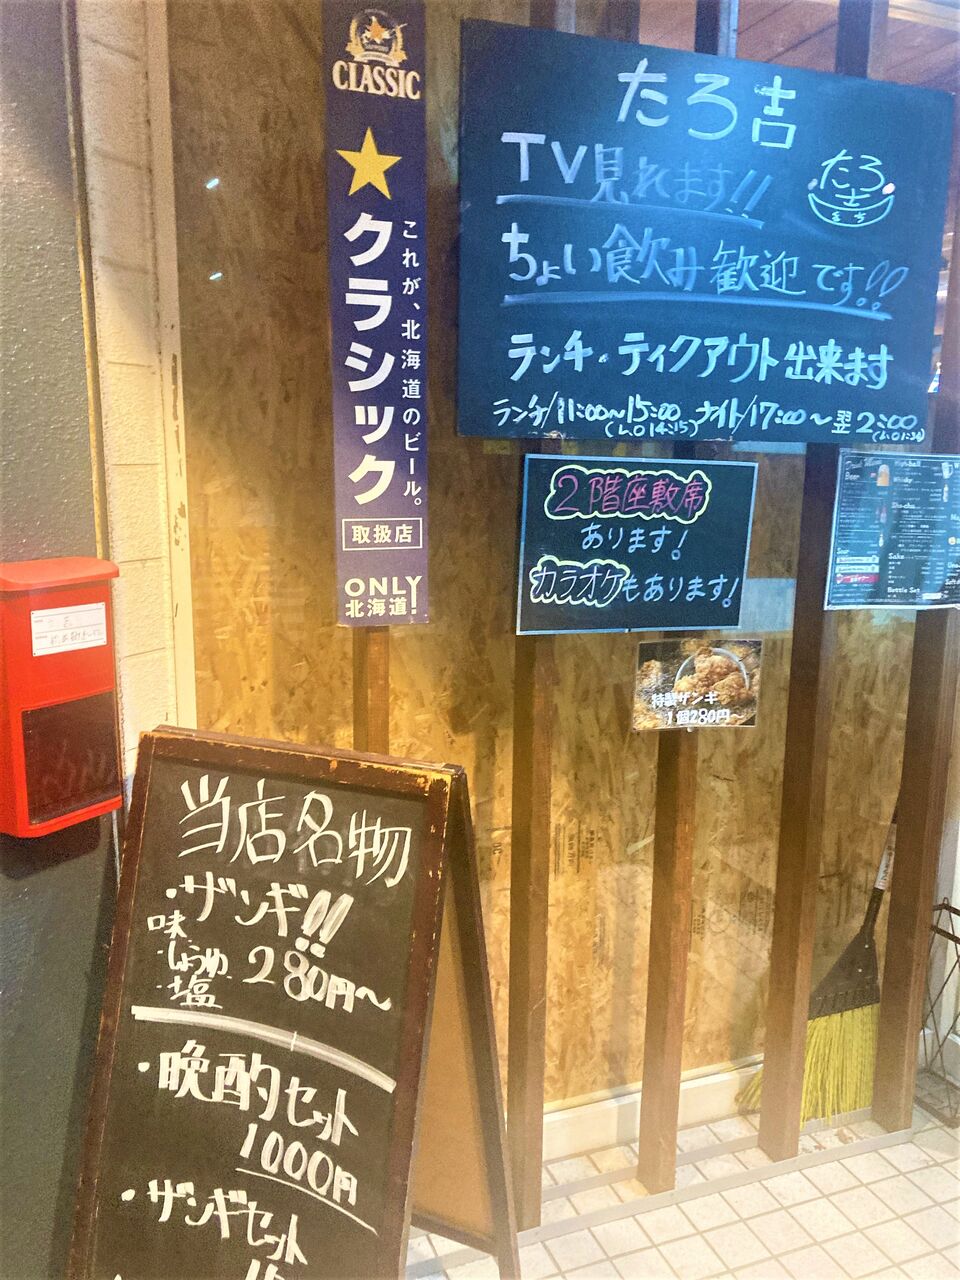 CLASSIC
クラシック
これが、北海道のビール。
取扱店
ONLY!
北海道
たろ吉
TV見れます!!
たろ
吉
ちょい飲み歓迎です!!
ランチ・ティクアウト出来ます
ランチ/11:00~15:00 ナイト/17:00~翌2:00
(L.O14:15)
2階座敷席
あります!
カラオケもあります!
Beer
High-ball
Whisky
Sho-chu
Sour
Sake
Bottle Set
特製ザンギ
1個280円~
当店名物
・ザンギ!!
味
・しょうゆ
・塩
280円~
・晩酌セット
1000円
・ザンギセット